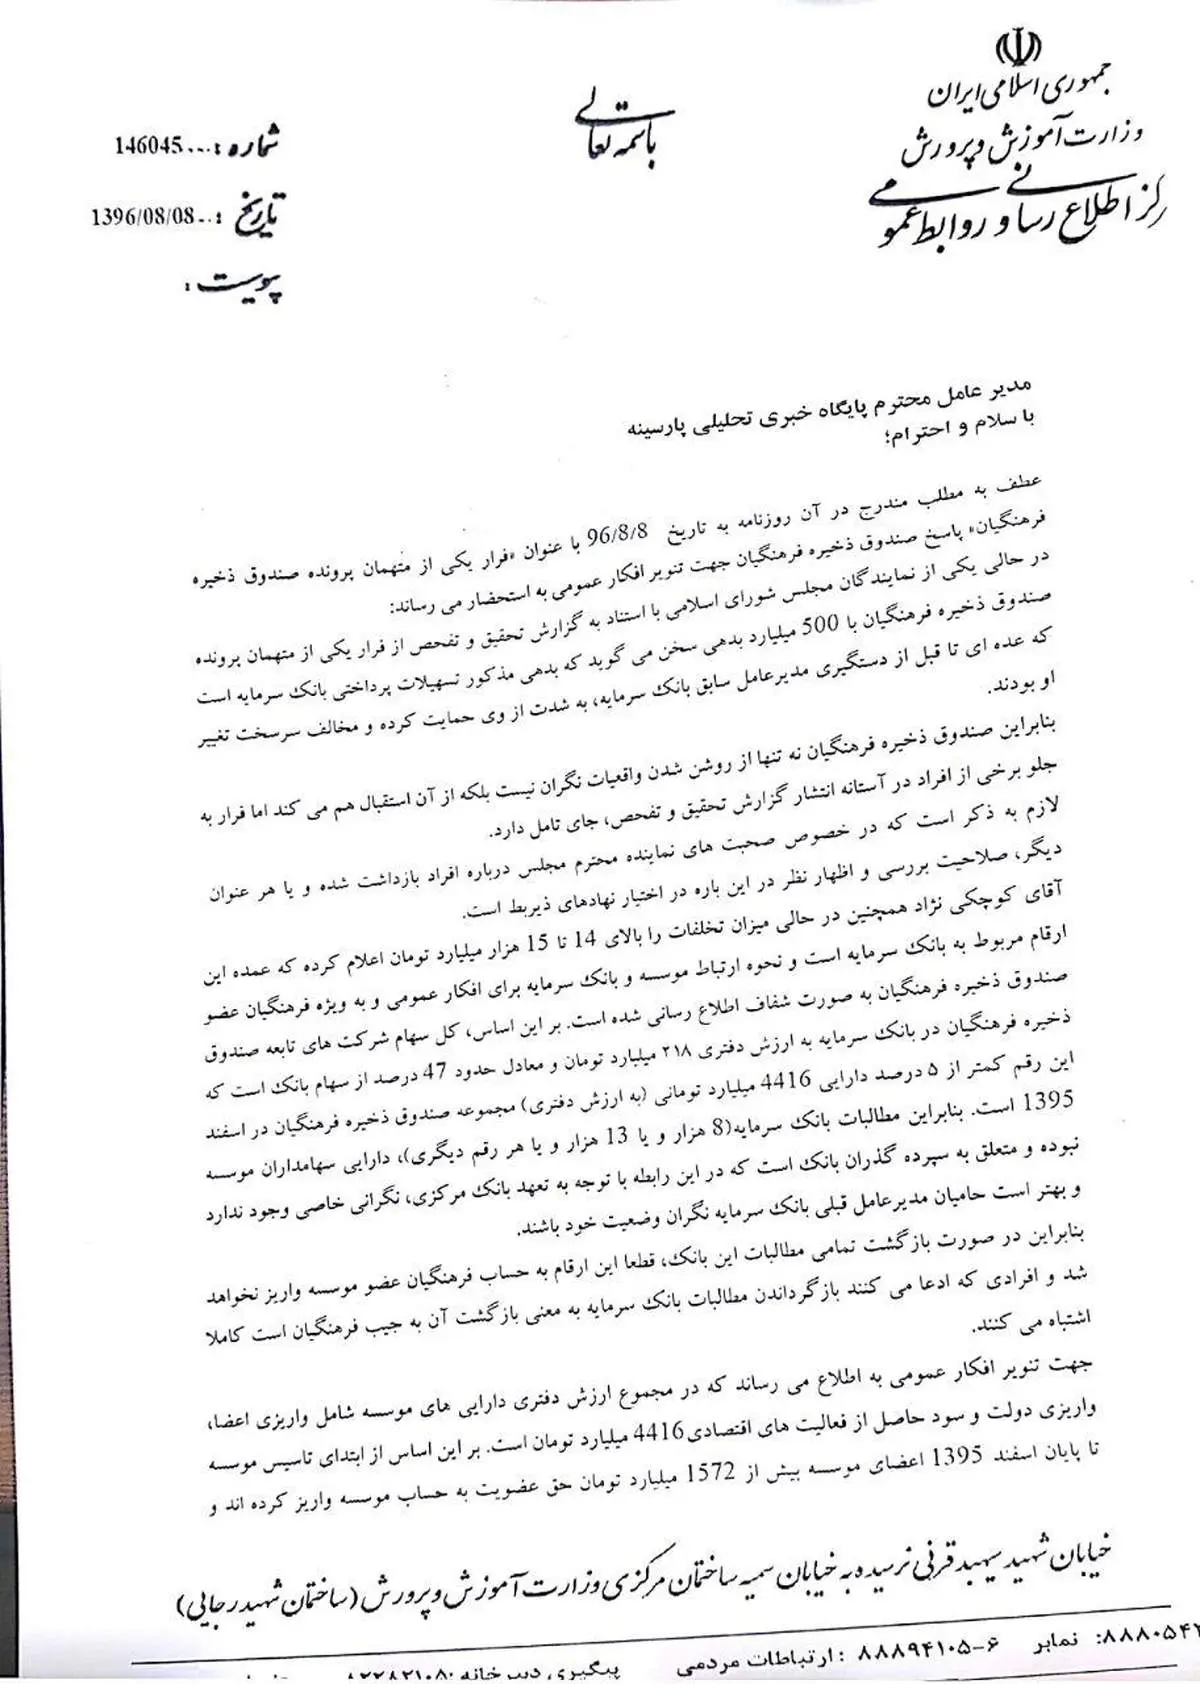 جمهوری اسلامی ایران
وزارت آموزش و پرورش
رکز اطلاع رسانی و روابط عمومی
باسمه تعالی
شماره : 146045
تاریخ : 1396/08/08
پیوست :
مدیر عامل محترم پایگاه خبری تحلیلی پارسینه
با سلام و احترام؛
عطف به مطلب مندرج در آن روزنامه به تاریخ 96/8/8 با عنوان «فرار یکی از متهمان پرونده صندوق ذخیره
فرهنگیان» پاسخ صندوق ذخیره فرهنگیان جهت تنویر افکار عمومی به استحضار می رساند:
در حالی یکی از نمایندگان مجلس شورای اسلامی با استناد به گزارش تحقیق و تفحص از فرار یکی از متهمان پرونده
صندوق ذخیره فرهنگیان با 500 میلیارد بدهی سخن می گوید که بدهی مذکور تسهیلات پرداختی بانک سرمایه است
که عده ای تا قبل از دستگیری مدیرعامل سابق بانک سرمایه، به شدت از وی حمایت کرده و مخالف سرسخت تغییر
او بودند.
بنابراین صندوق ذخیره فرهنگیان نه تنها از روشن شدن واقعیات نگران نیست بلکه از آن استقبال هم می کند اما فرار به
جلو برخی از افراد در آستانه انتشار گزارش تحقیق و تفحص، جای تامل دارد.
لازم به ذکر است که در خصوص صحبت های نماینده محترم مجلس درباره افراد بازداشت شده و یا هر عنوان
دیگر، صلاحیت بررسی و اظهار نظر در این باره در اختیار نهادهای ذیربط است.
آقای کوچکی نژاد همچنین در حالی میزان تخلفات را بالای 14 تا 15 هزار میلیارد تومان اعلام کرده که عمده این
ارقام مربوط به بانک سرمایه است و نحوه ارتباط موسسه و بانک سرمایه برای افکار عمومی و به ویژه فرهنگیان عضو
صندوق ذخیره فرهنگیان به صورت شفاف اطلاع رسانی شده است. بر این اساس، کل سهام شرکت های تابعه صندوق
ذخیره فرهنگیان در بانک سرمایه به ارزش دفتری ۲۱۸ میلیارد تومان و معادل حدود 47 درصد از سهام بانک است که
این رقم کمتر از ۵ درصد دارایی 4416 میلیارد تومانی (به ارزش دفتری) مجموعه صندوق ذخیره فرهنگیان در اسفند
1395 است. بنابراین مطالبات بانک سرمایه(8 هزار و یا 13 هزار و یا هر رقم دیگری)، دارایی سهامداران موسسه
نبوده و متعلق به سپرده گذران بانک است که در این رابطه با توجه به تعهد بانک مرکزی، نگرانی خاصی وجود ندارد
و بهتر است حامیان مدیرعامل قبلی بانک سرمایه نگران وضعیت خود باشند.
بنابراین در صورت بازگشت تمامی مطالبات این بانک، قطعا این ارقام به حساب فرهنگیان عضو موسسه واریز نخواهد
شد و افرادی که ادعا می کنند بازگرداندن مطالبات بانک سرمایه به معنی بازگشت آن به جیب فرهنگیان است کاملا
اشتباه می کنند.
جهت تنویر افکار عمومی به اطلاع می رساند که در مجموع ارزش دفتری دارایی های موسسه شامل واریزی اعضا،
واریزی دولت و سود حاصل از فعالیت های اقتصادی 4416 میلیارد تومان است. بر این اساس از ابتدای تاسیس موسسه
تا پایان اسفند 1395 اعضای موسسه بیش از 1572 میلیارد تومان حق عضویت به حساب موسسه واریز کرده اند و
خیابان شهید سپهبد قرنی نرسیده به خیابان سمیه ساختمان مرکزی وزارت آموزش و پرورش (ساختمان شهید رجایی)
نمابر :۸۸۸۰۵۴۲ ارتباطات مردمی : ۸۸۸۹۴۱۰۵-۶ پیگیری دبیرخانه :۸۲۲۸۲۱۰۸